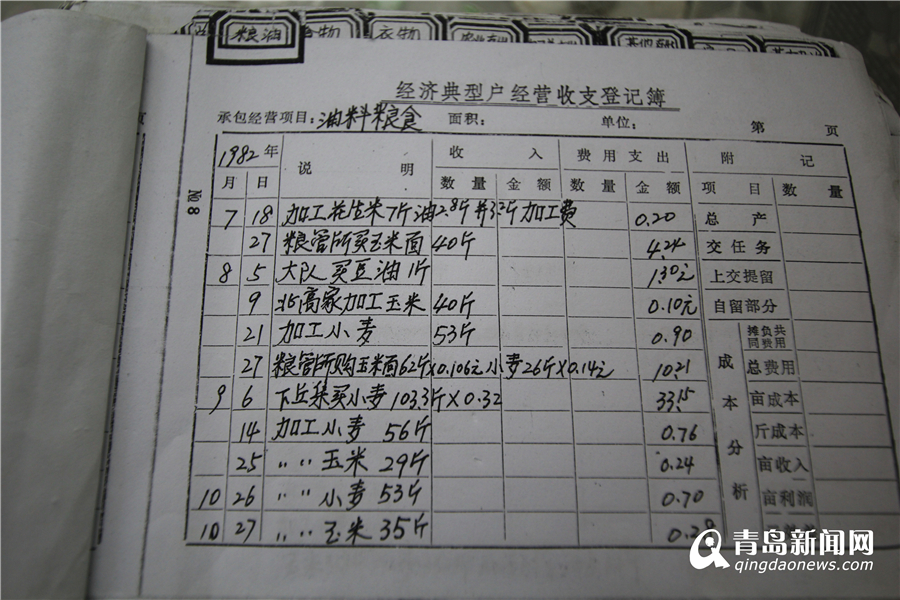 粮油 食物 衣物 其他
经济典型户经营收支登记簿
承包经营项目：油料粮食 面积： 单位： 第 页
№8
1982年 说明 收入 费用支出 附记
月 日 数量 金额 数量 金额 项目 数量
7 18 加工花生米7斤油2.8斤并3.2斤加工费 0.20 总产
27 粮管所买玉米面 40斤 4.24 交任务
8 5 大队买豆油1斤 1.30元 上交提留
9 北高家加工玉米 40斤 0.10元 自留部分
21 加工小麦 53斤 0.90 摊负共同费用
27 粮管所购玉米面62斤×0.106元小麦26斤×0.14元 10.21 总费用
9 6 下丘集买小麦103.3斤×0.32 33.15 亩成本
14 加工小麦 56斤 0.76 斤成本
25 〃〃玉米 29斤 0.24 亩收入
10 26 〃〃小麦 53斤 0.70 亩利润
10 27 〃〃玉米 35斤 0.28
成本分析
青岛新闻网
qingdaonews.com